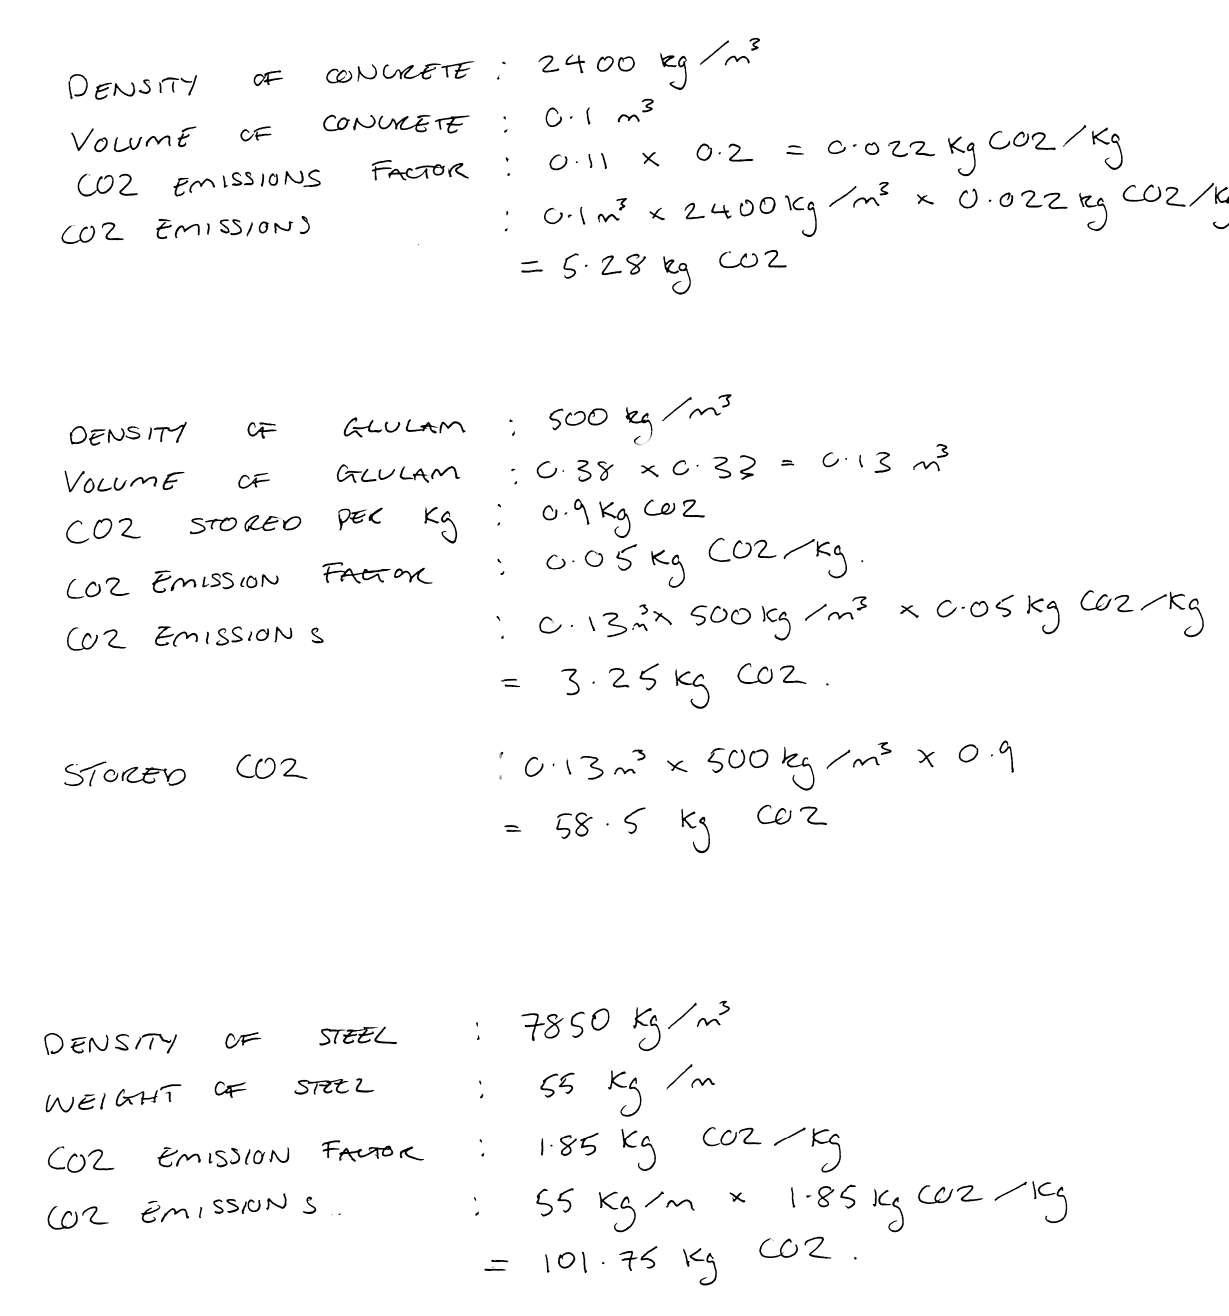 DENSITY OF CONCRETE : 2400 kg/m³
VOLUME OF CONCRETE : 0.1 m³
CO2 EMISSIONS FACTOR : 0.11 x 0.2 = 0.022 Kg CO2/Kg
CO2 EMISSIONS : 0.1 m³ x 2400 Kg/m³ x 0.022 kg CO2/kg
= 5.28 kg CO2
DENSITY OF GLULAM : 500 kg/m³
VOLUME OF GLULAM : 0.38 x 0.33 = 0.13 m³
CO2 STORED PER Kg : 0.9 Kg CO2
CO2 EMISSION FACTOR : 0.05 Kg CO2/Kg.
CO2 EMISSIONS : 0.13 m³ x 500 kg/m³ x 0.05 kg CO2/Kg
= 3.25 Kg CO2.
STORED CO2 : 0.13 m³ x 500 kg/m³ x 0.9
= 58.5 Kg CO2
DENSITY OF STEEL : 7850 Kg/m³
WEIGHT OF STEEL : 55 Kg/m
CO2 EMISSION FACTOR : 1.85 Kg CO2/Kg
CO2 EMISSIONS.. : 55 Kg/m x 1.85 Kg CO2/Kg
= 101.75 Kg CO2.